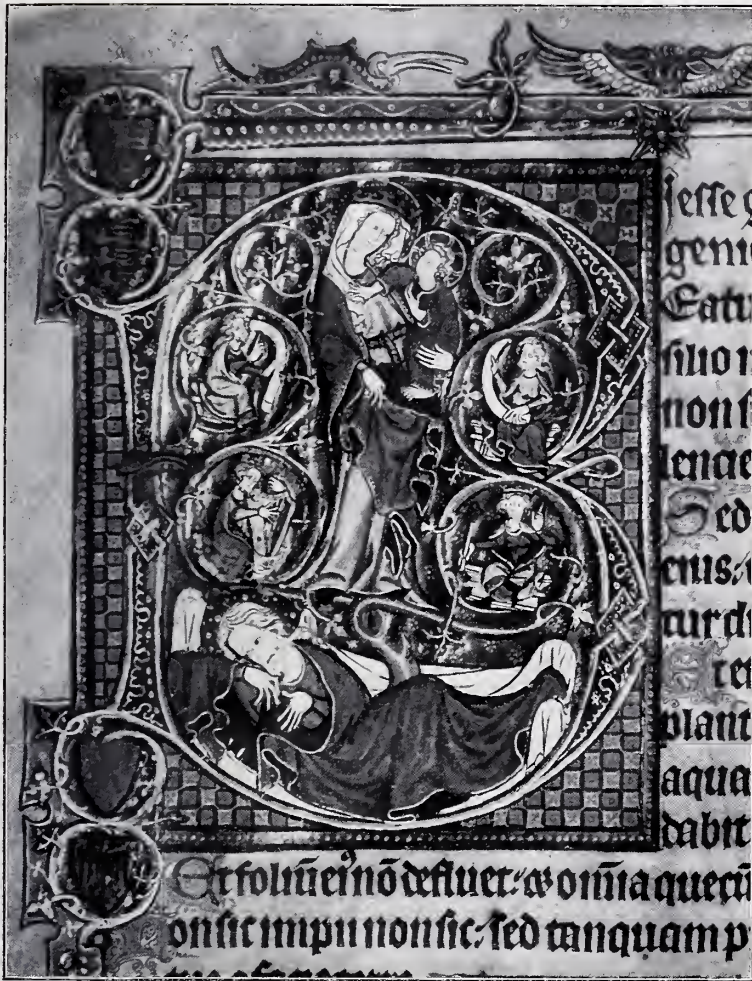 jesse g
geni
Eatu
silio n
non s
lencie
Sed
eius:
tur di
plant
aqua
dabit
Et foliū ei⁹ nō defluet: ⁊ om̄ia quecū
on sic impii non sic: sed tanquam p